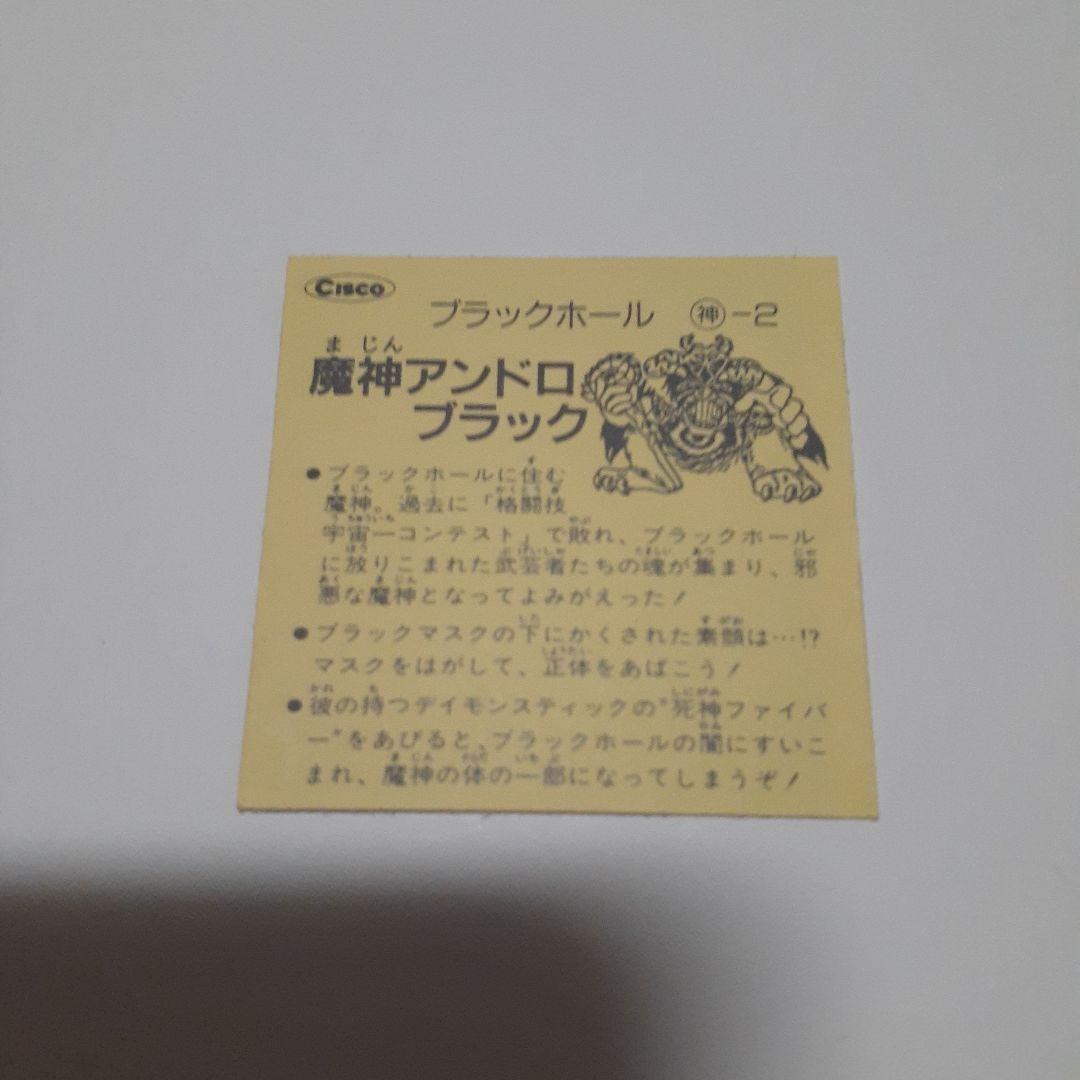 CISCO
ブラックホール 神-2
まじん
魔神アンドロ
ブラック
●ブラックホールに住む
魔神。過去に「格闘技
宇宙一コンテスト」で敗れ、ブラックホール
に放りこまれた武芸者たちの魂が集まり、邪
悪な魔神となってよみがえった!
●ブラックマスクの下にかくされた素顔は…!?
マスクをはがして、正体をあばこう!
●彼の持つデイモンスティックの“死神ファイバ
ー”をあびると、ブラックホールの闇にすいこ
まれ、魔神の体の一部になってしまうぞ!